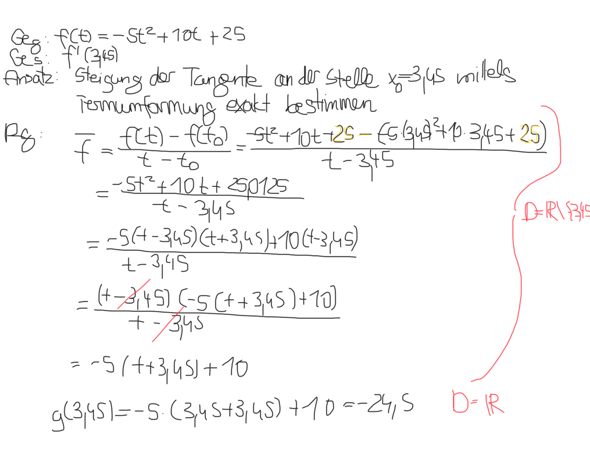 Geg: f(t) = -5t² + 10t + 25
Ges: f'(3,45)
Ansatz: Steigung der Tangente an der Stelle x₀=3,45 mittels
Termumformung exakt bestimmen
Rg: f̅ = (f(t) - f(t₀))/(t - t₀) = (-5t² + 10t + 25 - (-5·(3,45)² + 10·3,45 + 25))/(t - 3,45)
= (-5t² + 10t + 25,0125)/(t - 3,45)
D=ℝ\{3,45
= (-5(t-3,45)(t+3,45)+10(t-3,45))/(t - 3,45)
= ((t-3,45)(-5(t+3,45)+10))/(t - 3,45)
= -5(t+3,45)+10
g(3,45) = -5·(3,45+3,45)+10 = -24,5
D=ℝ